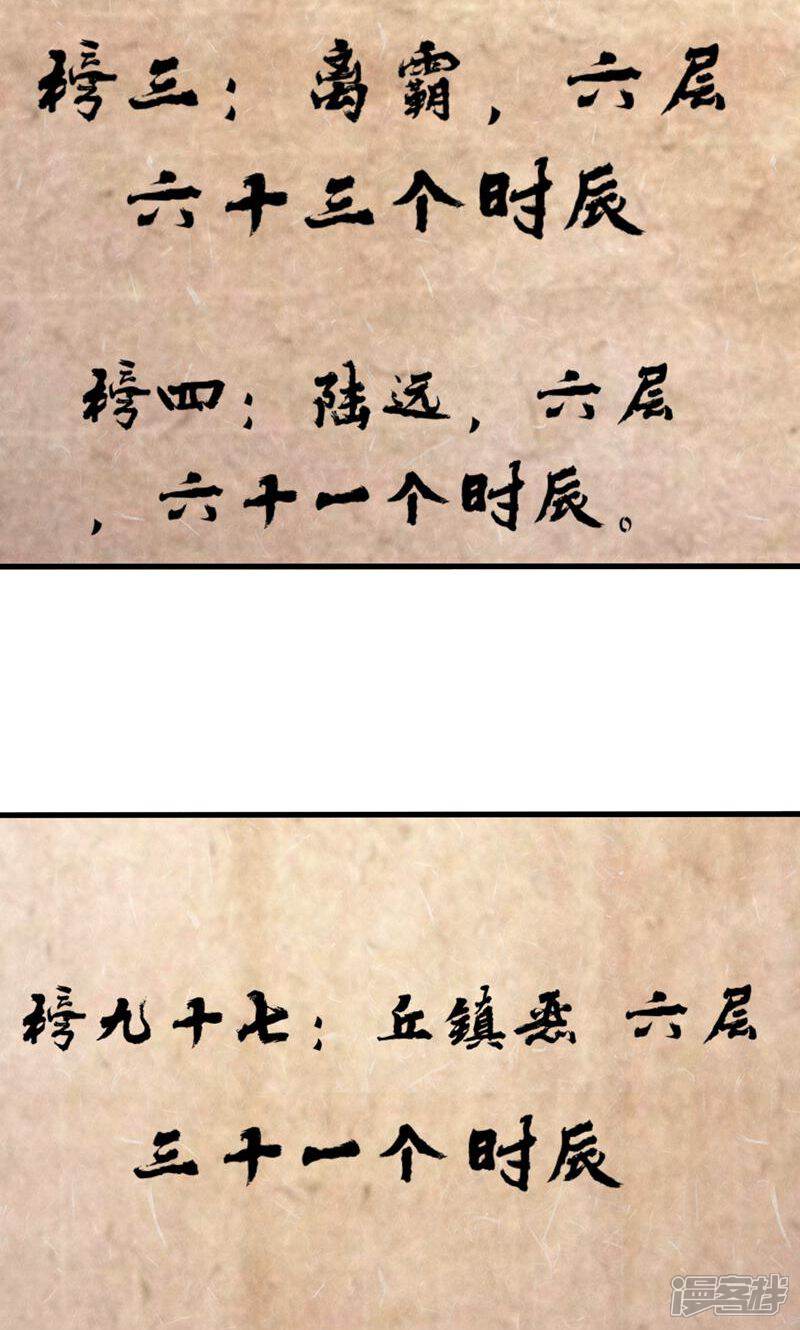 榜三；离霸，六层
六十三个时辰
榜四；陆远，六层
，六十一个时辰。
榜九十七；丘鎮恶 六层
三十一个时辰
漫客栈